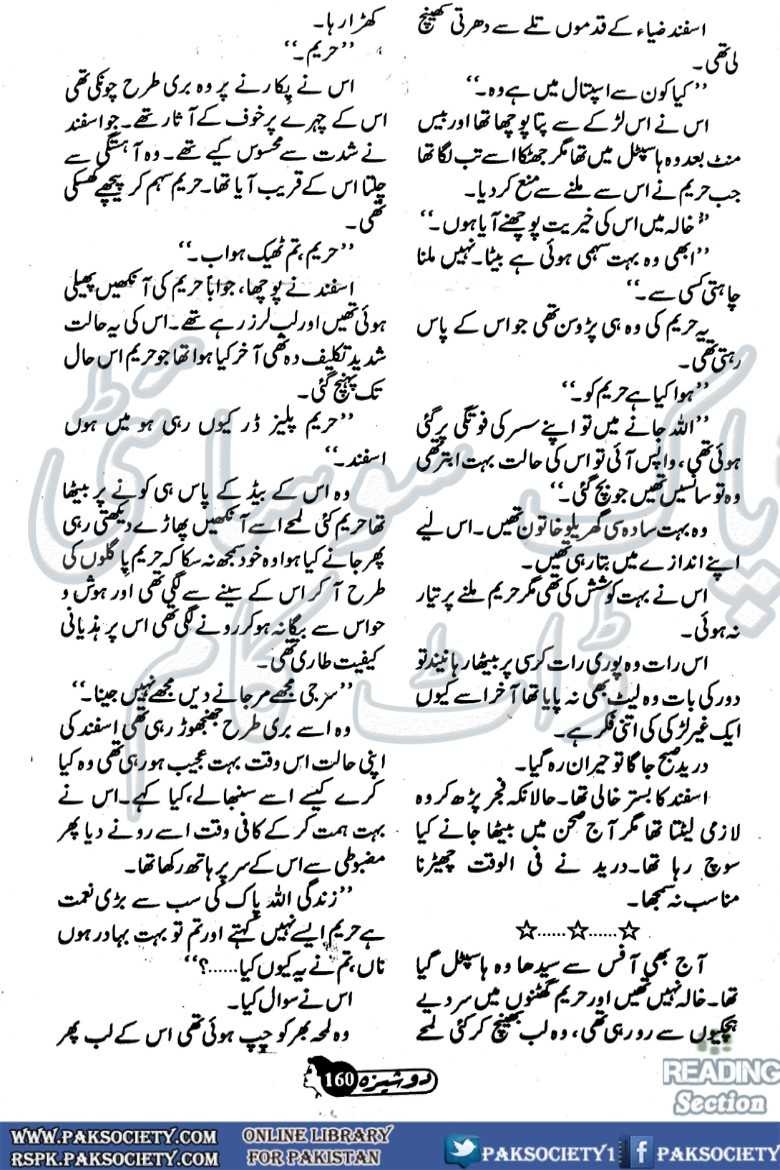 اسفند ضیاء کے قدموں تلے سے دھرتی کھینچ
لی تھی۔
’’کیا کون سے اسپتال میں ہے وہ۔‘‘
اس نے اس لڑکے سے پتا پوچھا تھا اور بیس
منٹ بعد وہ ہاسپٹل میں تھا مگر جھٹکا اسے تب لگا تھا
جب حریم نے اس سے ملنے سے منع کر دیا۔
’’خالہ میں اس کی خیریت پوچھنے آیا ہوں۔‘‘
’’ابھی وہ بہت سہمی ہوئی ہے بیٹا۔ نہیں ملنا
چاہتی کسی سے۔‘‘
یہ حریم کی وہ ہی پڑوسن تھی جو اس کے پاس
رہتی تھی۔
’’ہوا کیا ہے حریم کو۔‘‘
’’اللہ جانے میں تو اپنے سسر کی فوتگی پر گئی
ہوئی تھی، واپس آئی تو اس کی حالت بہت ابتر تھی
وہ تو سانسیں تھیں جو بچ گئی۔‘‘
وہ بہت سادہ سی گھریلو خاتون تھیں۔ اس لیے
اپنے اندازے میں بتا رہی تھیں۔
اس نے بہت کوشش کی تھی مگر حریم ملنے پر تیار
نہ ہوئی۔
اس رات وہ پوری رات کرسی پر بیٹھا رہا نیند تو
دور کی بات وہ لیٹ بھی نہ پایا تھا آخر اسے کیوں
ایک غیر لڑکی کی اتنی فکر ہے۔
درید صبح جاگا تو حیران رہ گیا۔
اسفند کا بستر خالی تھا۔ حالانکہ فجر پڑھ کر وہ
لازمی لیٹتا تھا مگر آج صحن میں بیٹھا جانے کیا
سوچ رہا تھا۔ درید نے فی الوقت چھیڑنا
مناسب نہ سمجھا۔
☆......☆......☆
آج بھی آفس سے سیدھا وہ ہاسپٹل گیا
تھا۔ خالہ نہیں تھیں اور حریم گھٹنوں میں سر دیے
ہچکیوں سے رو رہی تھی، وہ لب بھینچ کر کئی لمحے
کھڑا رہا۔
’’حریم۔‘‘
اس نے پکارنے پر وہ بری طرح چونکی تھی
اس کے چہرے پر خوف کے آثار تھے۔ جو اسفند
نے شدت سے محسوس کیے تھے۔ وہ آہستگی سے
چلتا اس کے قریب آیا تھا۔ حریم سہم کر پیچھے کھسکی
تھی۔
’’حریم، تم ٹھیک ہو اب۔‘‘
اسفند نے پوچھا، جواباً حریم کی آنکھیں پھیلی
ہوئی تھیں اور لب لرز رہے تھے۔ اس کی یہ حالت
شدید تکلیف دہ تھی آخر کیا ہوا تھا جو حریم اس حال
تک پہنچ گئی۔
’’حریم پلیز ڈر کیوں رہی ہو میں ہوں
اسفند۔‘‘
وہ اس کے بیڈ کے پاس ہی کونے پر بیٹھا
تھا حریم کئی لمحے اسے آنکھیں پھاڑے دیکھتی رہی
پھر جانے کیا ہوا وہ خود سمجھ نہ سکا کہ حریم پاگلوں کی
طرح آ کر اس کے سینے سے لگی تھی اور ہوش و
حواس سے بیگانہ ہو کر رونے لگی تھی اس پر ہذیانی
کیفیت طاری تھی۔
’’سر جی مجھے مر جانے دیں مجھے نہیں جینا۔‘‘
وہ اسے بری طرح جھنجھوڑ رہی تھی اسفند کی
اپنی حالت اس وقت بہت عجیب ہو رہی تھی وہ کیا
کرے کیسے اسے سنبھالے، کیا کہے۔ اس نے
بہت ہمت کر کے کافی وقت اسے رونے دیا پھر
مضبوطی سے اس کے سر پر ہاتھ رکھا تھا۔
’’زندگی اللہ پاک کی سب سے بڑی نعمت
ہے حریم ایسے نہیں کہتے اور تم تو بہت بہادر ہوں
ناں، تم نے یہ کیوں کیا......؟‘‘
اس نے سوال کیا۔
وہ لمحہ بھر کو چپ ہوئی تھی اس کے لب پھر
دوشیزہ 160
پاک سوسائٹی
ڈاٹ کام
READING
Section
WWW.PAKSOCIETY.COM
RSPK.PAKSOCIETY.COM
ONLINE LIBRARY
FOR PAKISTAN
PAKSOCIETY1
PAKSOCIETY